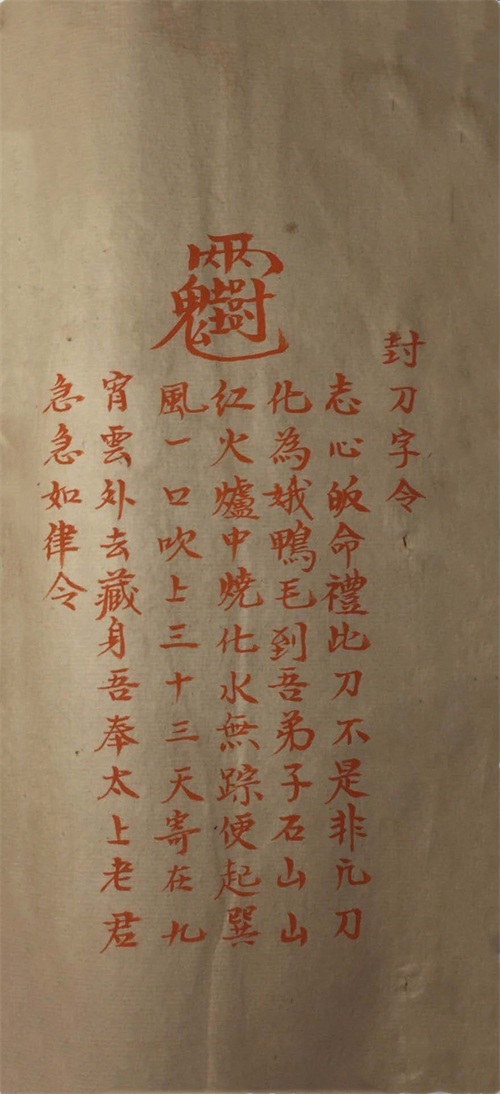 封刀字令
志心皈命禮此刀不是非凢刀
化為娥鴨毛到吾弟子石山山
紅火爐中燒化水無踪便起巽
風一口吹上三十三天寄在九
宵雲外去藏身吾奉太上老君
急急如律令